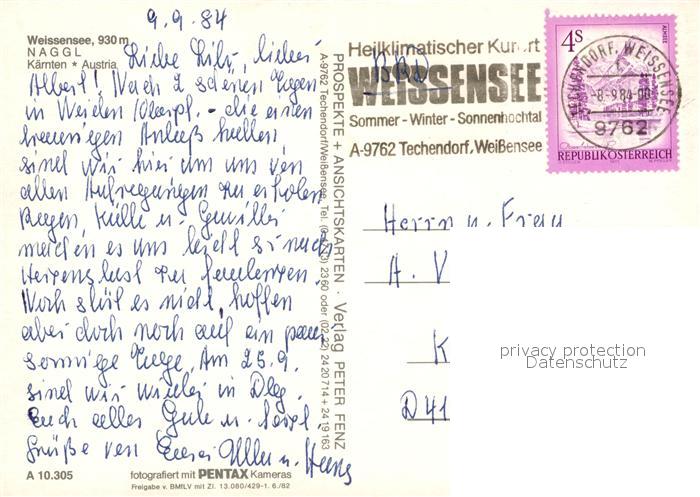 9.9.84
Weissensee, 930 m
NAGGL
Kärnten * Austria
Liebe Lilo, lieber
Albert! Nach 2 schönen Tagen
in Weiden/Oberpf. - die einen
traurigen Anlaß hatten,
sind wir hier um uns von
allen Aufregungen zu erholen.
Regen, Kälte u. Gewitter
machen es uns leicht so nach
Herzenslust zu faulenzen.
Noch stört es nicht, hoffen
aber doch noch auf ein paar
sonnige Tage. Am 23.9.
sind wir wieder in
Euch alles Gute u. herzl.
Grüße von Eurer u.
A 10.305
fotografiert mit PENTAX Kameras
Freigabe v. BMfLV mit Zl. 13.080/429-1.6./82
PROSPEKTE + ANSICHTSKARTEN · Verlag PETER FENZ
A-9762 Techendorf/Weißensee, Tel. 2360 oder 2420714 + 2419163
Heilklimatischer Kurort
BRD
WEISSENSEE
Sommer - Winter - Sonnenhochtal
A-9762 Techendorf, Weißensee
4S
ALMSEE
REPUBLIK ÖSTERREICH
TECHENDORF, WEISSENSEE
-8.-9.84-00
9762
Herrn u. Frau
A. V
K
D 41
privacy protection
Datenschutz